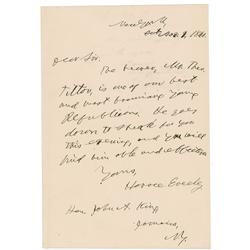 New York,
Dear Sir:
The bearer, Mr. Theo.
Tilton, is one of our best
and most promising young
Republicans. He goes
down to speak for you
this evening, and you will
find him able and effective.
Yours,
Horace Greeley
Hon. John A. King,
Jamaica,
N.Y.